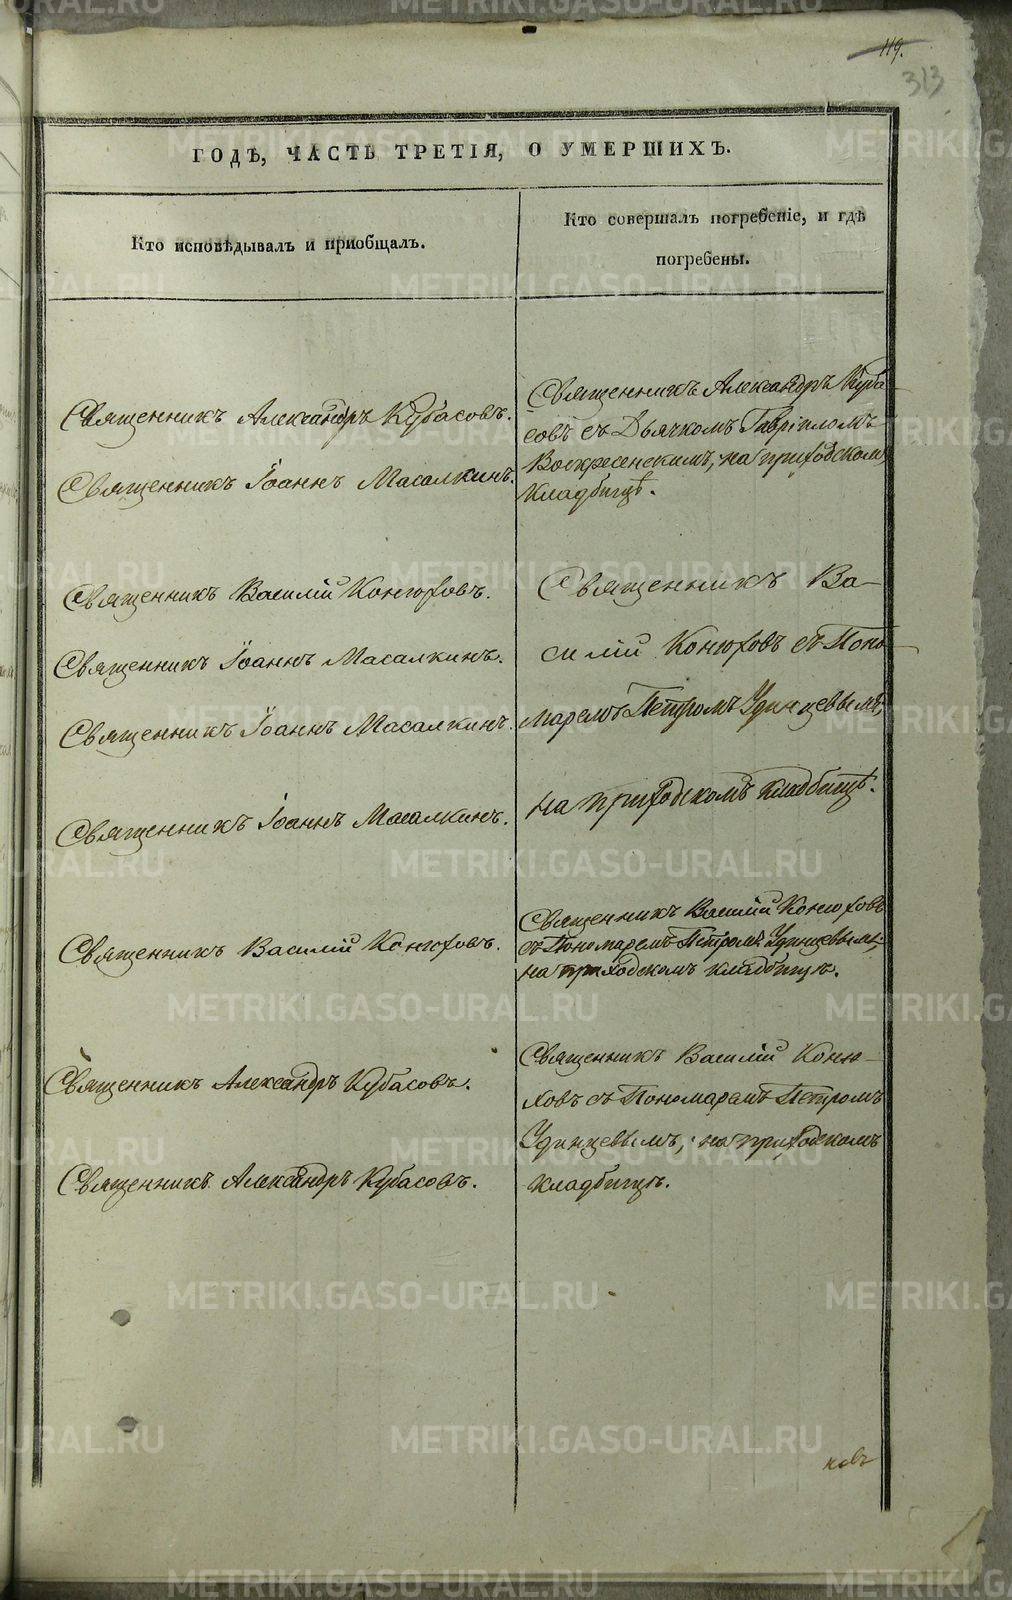 119.
313
ГОДѢ, ЧАСТЬ ТРЕТІЯ, О УМЕРШИХЪ.
Кто исповѣдывалъ и приобщалъ.
Кто совершалъ погребеніе, и гдѣ
погребены.
Священникъ Александръ Кубасовъ.
Священникъ Іоаннъ Масалкинъ.
Священникъ Василій Конюховъ.
Священникъ Іоаннъ Масалкинъ.
Священникъ Іоаннъ Масалкинъ.
Священникъ Іоаннъ Масалкинъ.
Священникъ Василій Конюховъ.
Священникъ Александръ Кубасовъ.
Священникъ Александръ Кубасовъ.
Священникъ Александръ Куба-
совъ съ Дьячкомъ Гавріиломъ
Воскресенскимъ, на приходском
кладбищѣ.
Священникъ Ва-
силій Конюховъ съ Поно-
маремъ Петромъ Удинцевымъ,
на приходскомъ кладбищѣ.
Священникъ Василій Конюховъ
съ Пономаремъ Петромъ Удинцевымъ,
на приходскомъ кладбищѣ.
Священникъ Василій Коню-
ховъ съ Пономаремъ Петромъ
Удинцевымъ, на приходскомъ
кладбищѣ.
ковъ
METRIKI.GASO-URAL.RU